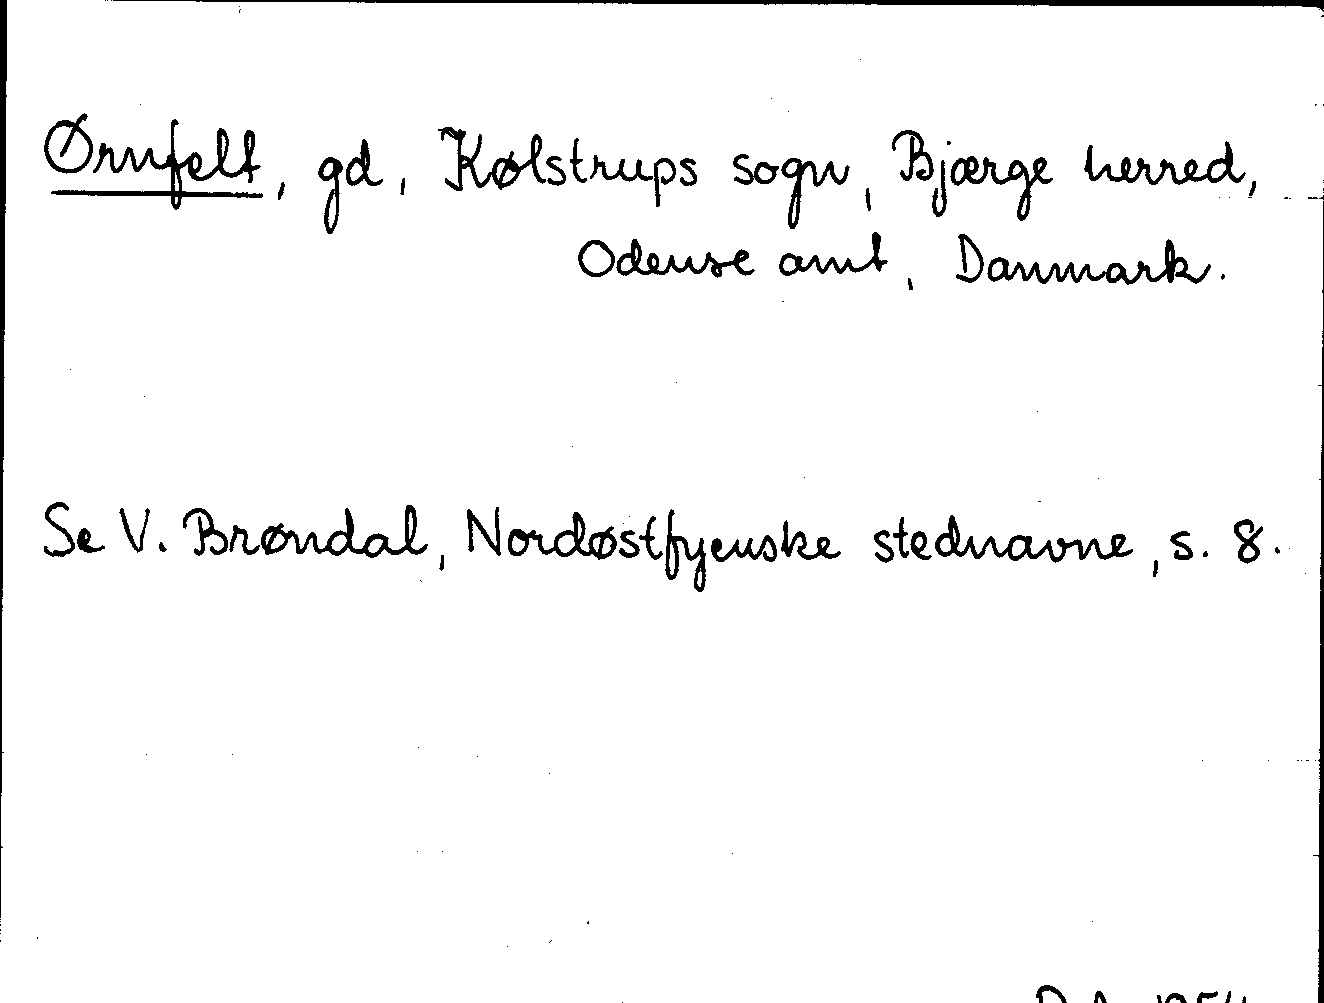 Ørnfelt, gd, Kølstrups sogn, Bjærge herred,
Odense amt, Danmark.
Se V. Brøndal, Nordøstfyenske stednavne, s. 8.